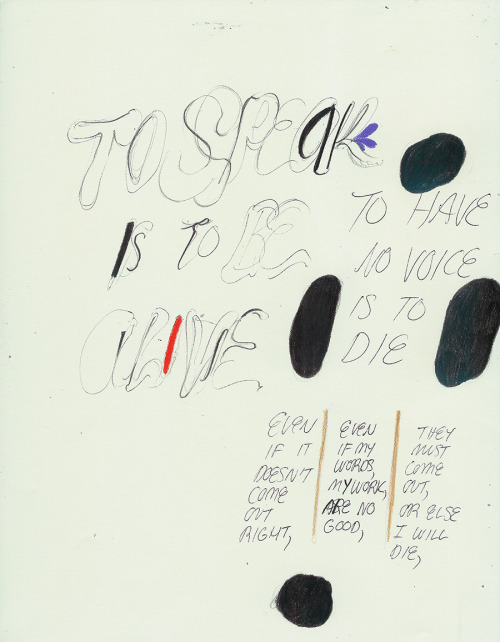 TO SPEAK
IS TO BE
ALIVE
TO HAVE
NO VOICE
IS TO
DIE
EVEN
IF IT
DOESN'T
COME
OUT
RIGHT,
EVEN
IF MY
WORDS,
MY WORK,
ARE NO
GOOD,
THEY
MUST
COME
OUT,
OR ELSE
I WILL
DIE,